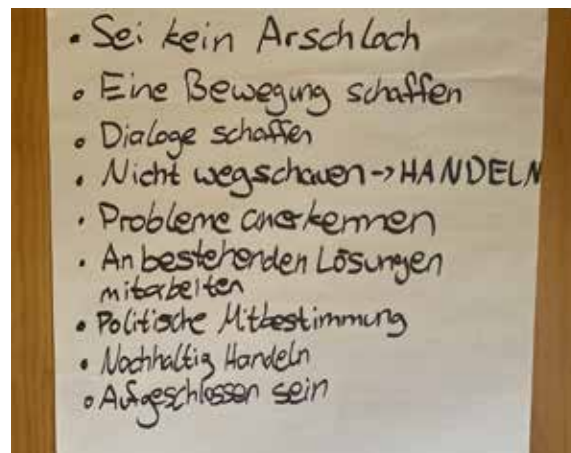 • Sei kein Arschloch
• Eine Bewegung schaffen
• Dialoge schaffen
• Nicht wegschauen -> HANDELN
• Probleme anerkennen
• An bestehenden Lösungen
mitarbeiten
• Politische Mitbestimmung
• Nachhaltig Handeln
• Aufgeschlossen sein